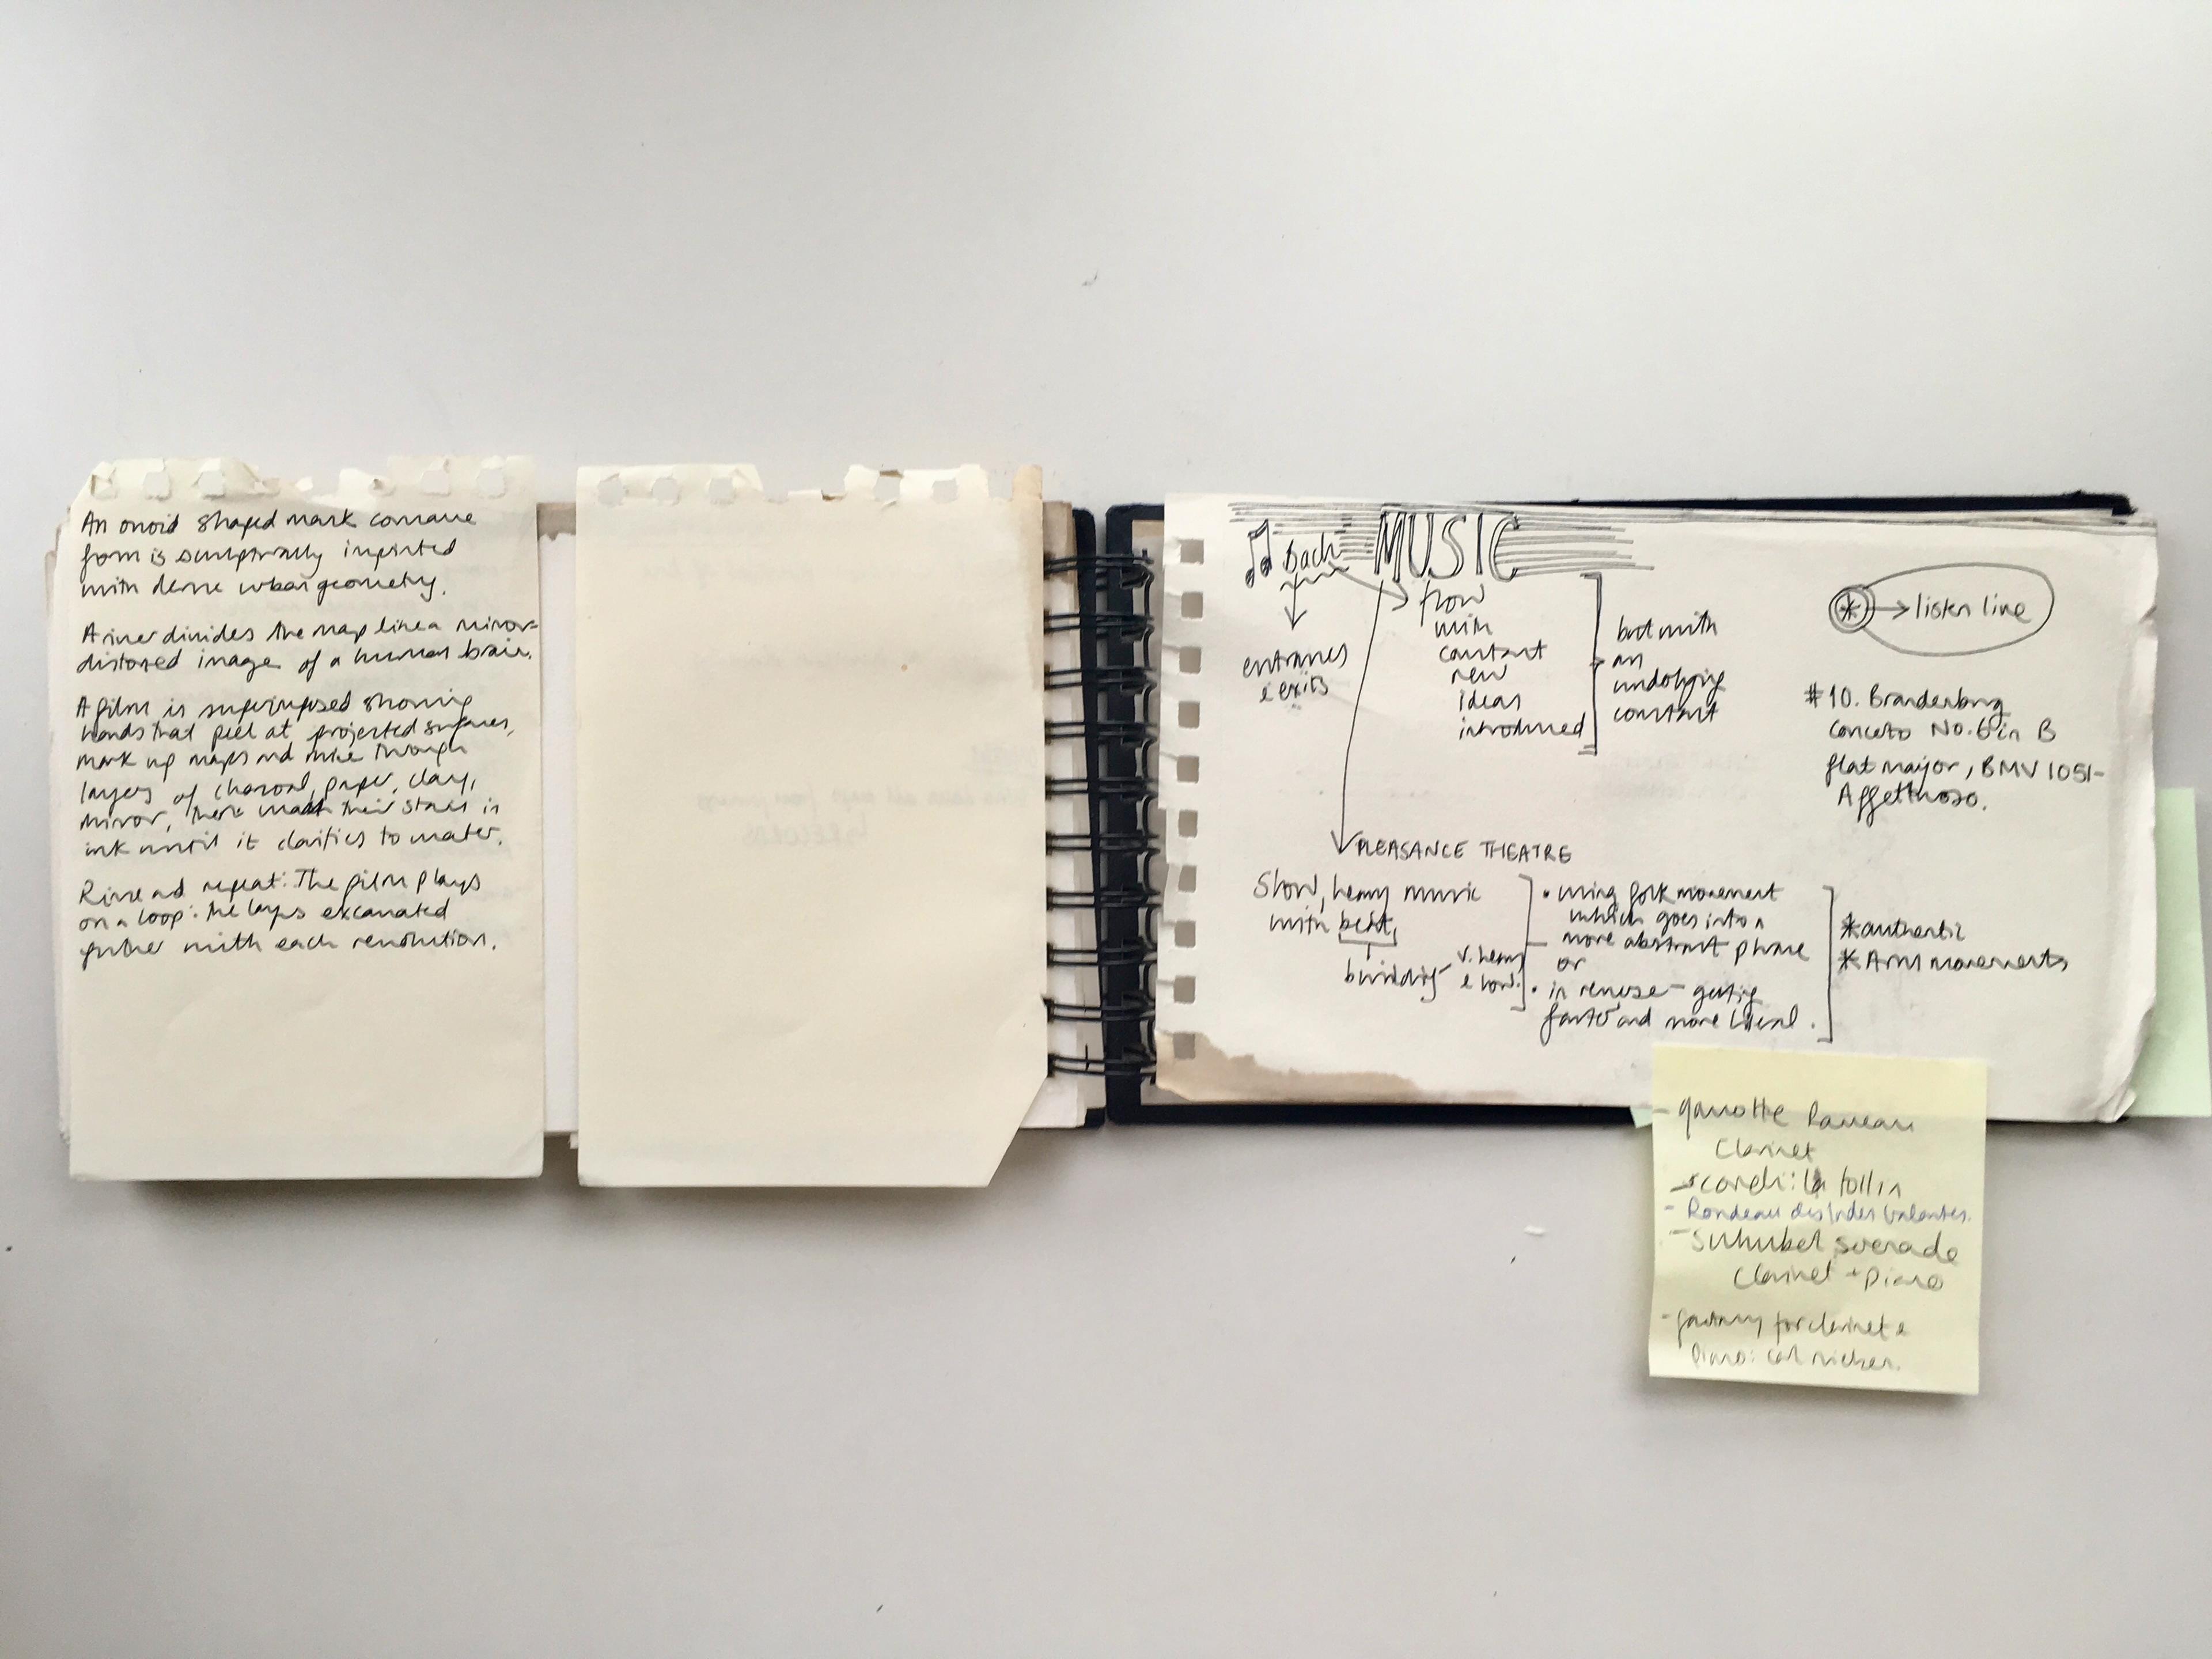 An ovoid shaped mark concave
form is sculpturally imprinted
with dense urban geometry.
A river divides the map like a mirror-
distorted image of a human brain.
A film is superimposed showing
hands that peel at projected surfaces,
mark up maps and mine through
layers of charcoal, paper, clay,
mirror, there their stains in
ink until it clarifies to water.
Rinse and repeat: The film plays
on a loop: the layers excavated
further with each revolution.
Bach MUSIC
entrances
& exits
flow
with
constant
new
ideas
introduced
but with
an
underlying
constant
* → listen line
#10. Brandenburg
Concerto No. 6 in B
flat major, BMV 1051-
Affettuoso.
PLEASANCE THEATRE
Slow, heavy music
with beat,
building
v. heavy
& loud.
• using folk movement
which goes into a
more abstract phrase
or
• in reverse - getting
faster and more literal.
* authentic
* Arm movements
- gavotte Rameau
Clarinet
- la follia
- Rondeau des Indes Galantes.
- Schubert serenade
Clarinet + piano
- fantasy for clarinet &
piano: